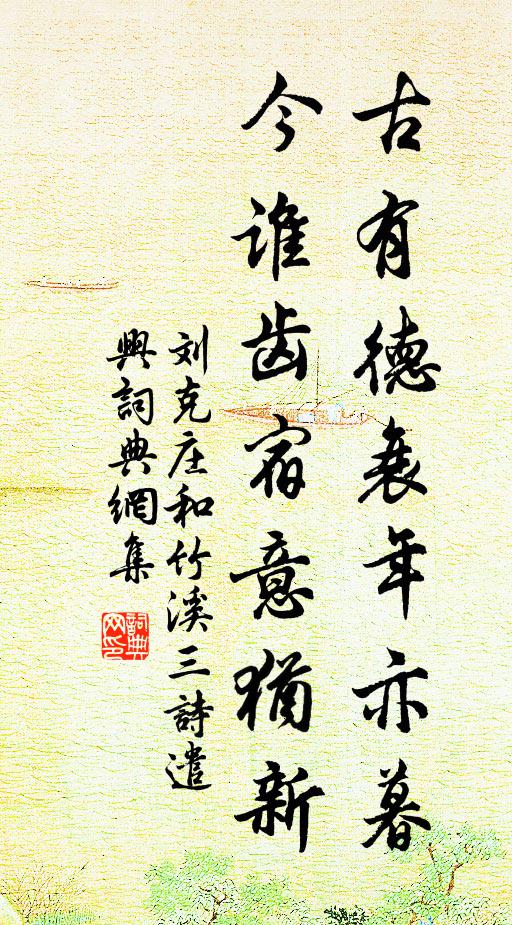 古有德衰年亦暮
今谁齿宿意猶新
刘克庄和竹溪三詩遣
興詞典網集
詞典网印